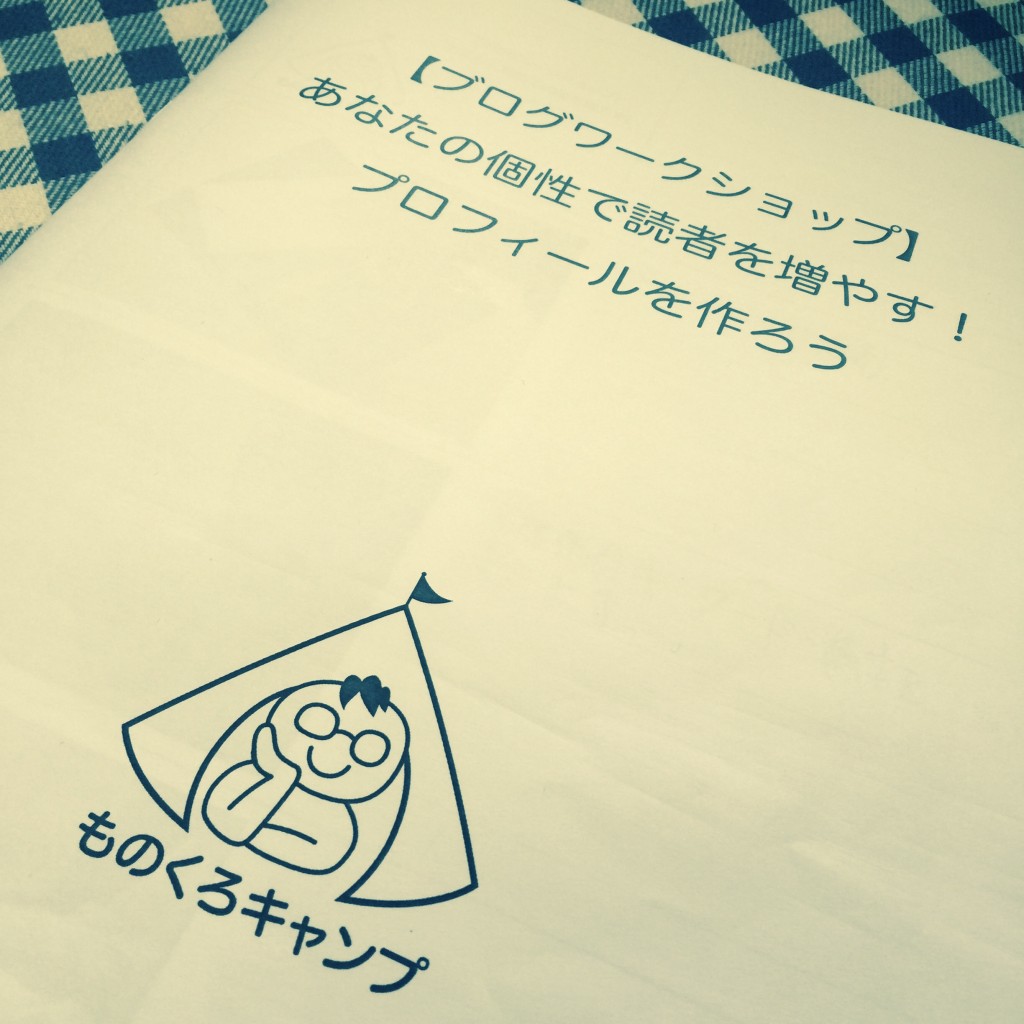 【ブログワークショップ】
あなたの個性で読者を増やす！
プロフィールを作ろう
ものくろキャンプ